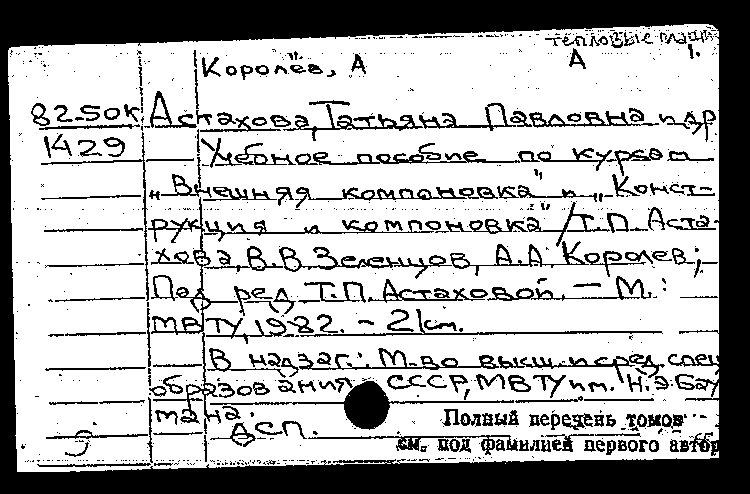 тепловые
Королёв, А
А
1.
82-50К Астахова, Татьяна Павловна и др
1429 Учебное пособие по курсам
„Внешняя компоновка" и „Конст-
рукция и компоновка" /Т.П. Аста-
хова, В.В. Зеленцов, А.А. Королев;
Под ред. Т.П. Астаховой. — М.:
МВТУ, 1982. - 21см.
В надзаг.: М-во высш. и сред. спец
образования СССР, МВТУ им. Н.Э. Бау
мана.
ДСП.
Полный перечень томов
см. под фамилией первого автор